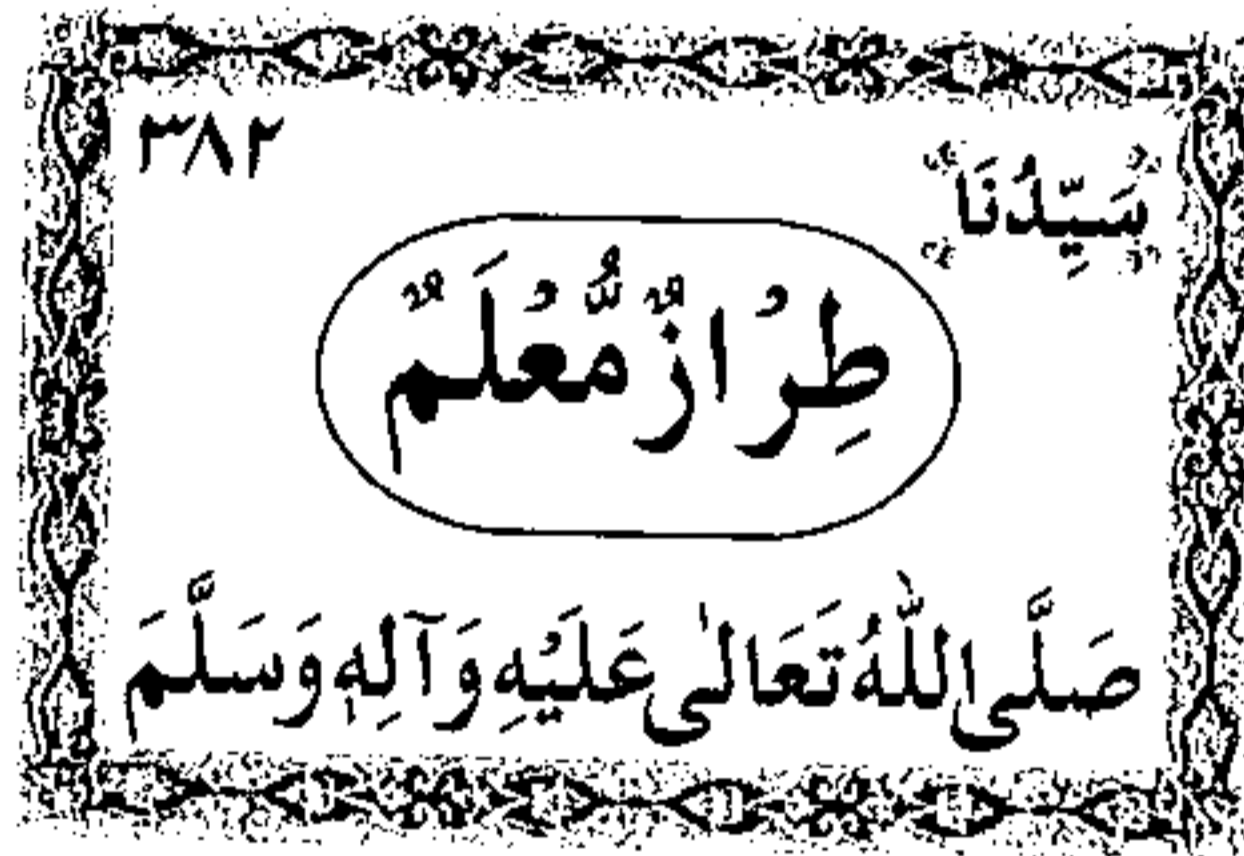 سَيِّدُنَا ٣٨٢
طِرْازٌ مُّعْلَمٌ
صَلَّى اللّٰهُ تَعَالٰى عَلَيْهِ وَآلِهٖ وَسَلَّمَ